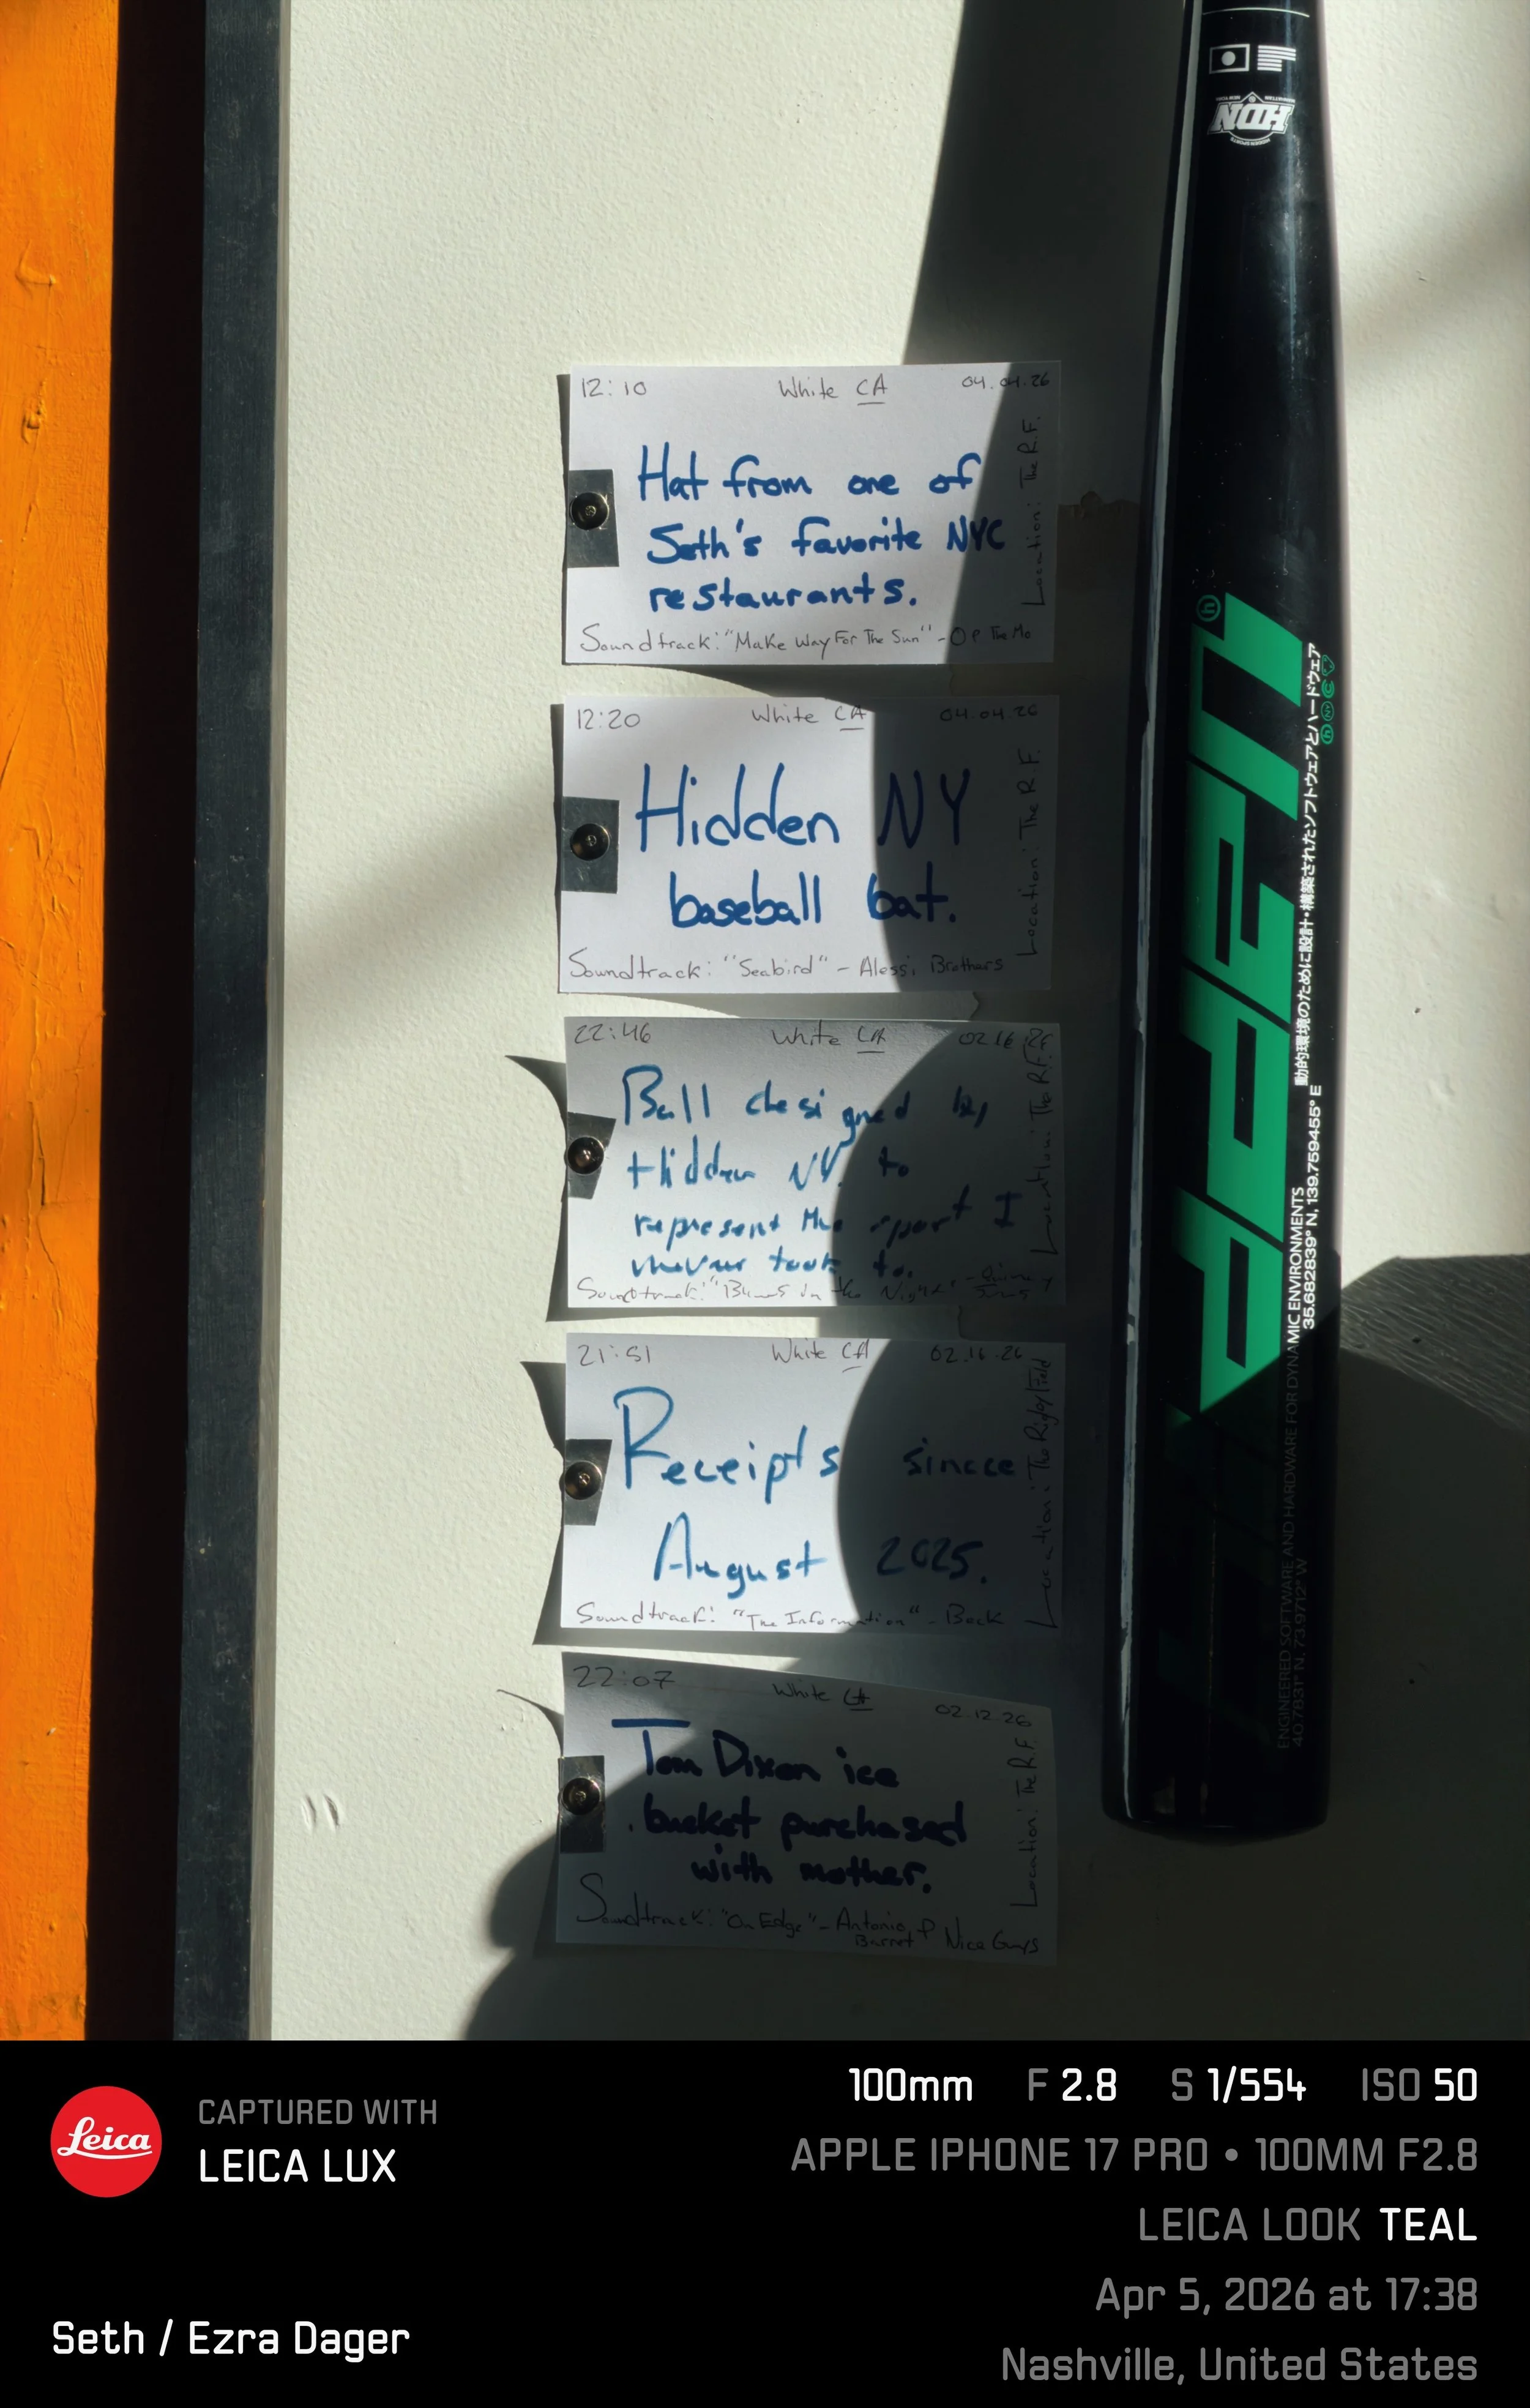 12:10 White CA 04.04.26
Hat from one of
Seth's favorite NYC
restaurants.
Soundtrack: "Make Way For The Sun" - Op The Mo
Location: The R.F.
12:20 White CA 04.04.26
Hidden NY
baseball bat.
Soundtrack: "Seabird" - Alessi Brothers
Location: The R.F.
22:46 White CA 02.16
Ball designed by
Hidden NY to
represent the sport I
never took to.
Soundtrack: in the Night"
Location: The R.F.
21:51 White CA 02.16.26
Receipts sincce
August 2025.
Soundtrack: "The Information" - Beck
Location: The Rigby Field
22:07 White CA 02.12.26
Tom Dixon ice
bucket purchased
with mother.
Soundtrack: "On Edge" - Antonio
Barret & Nice Guys
Location: The R.F.
HDN
HIDDEN SPORTS
MANHATTAN NEW YORK
h
動的環境のために設計・構築されたソフトウェアとハードウェア
ENGINEERED SOFTWARE AND HARDWARE FOR DYNAMIC ENVIRONMENTS
40.7831° N, 73.9712° W 35.682839° N, 139.759455° E
Leica
CAPTURED WITH
LEICA LUX
Seth / Ezra Dager
100mm F 2.8 S 1/554 ISO 50
APPLE IPHONE 17 PRO • 100MM F2.8
LEICA LOOK TEAL
Apr 5, 2026 at 17:38
Nashville, United States